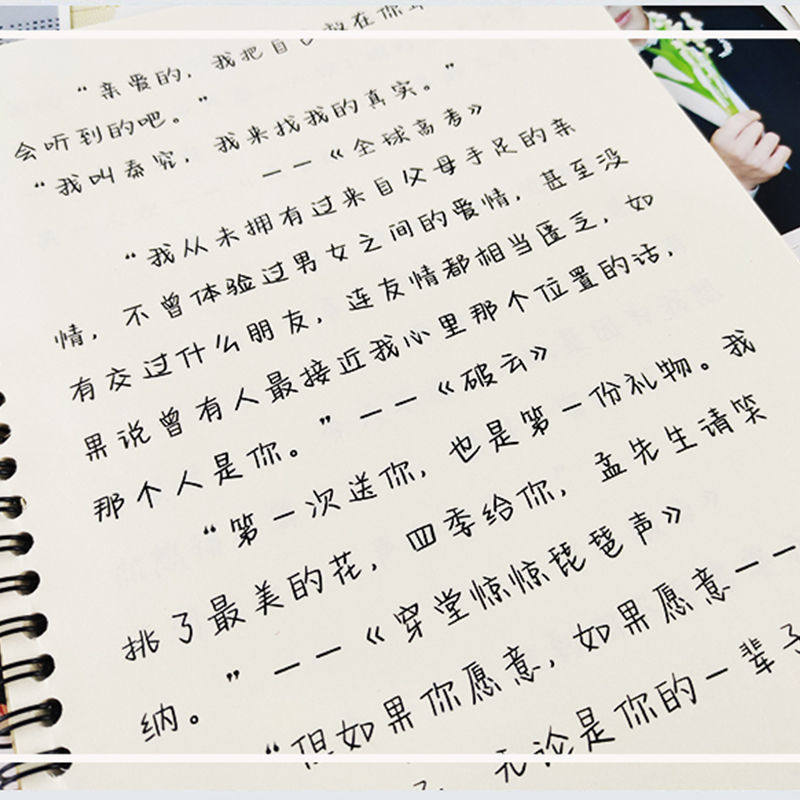 “亲爱的，我把自己放在你
会听到的吧。”
“我叫秦究，我来找我的真实。”
——《全球高考》
“我从未拥有过来自父母手足的亲
情，不曾体验过男女之间的爱情，甚至没
有交过什么朋友，连友情都相当匮乏，如
果说曾有人最接近我心里那个位置的话，
那个人是你。”——《破云》
“第一次送你，也是第一份礼物。我
挑了最美的花，四季给你，孟先生请笑
纳。”——《穿堂惊惊琵琶声》
“但如果你愿意，如果愿意——
无论是你的一辈子